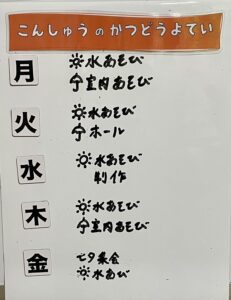 こんしゅうのかつどうよてい
月 ☀水あそび
☂室内あそび
火 ☀水あそび
☂ホール
水 ☀水あそび
制作
木 ☀水あそび
☂室内あそび
金 七夕集会
☀水あび